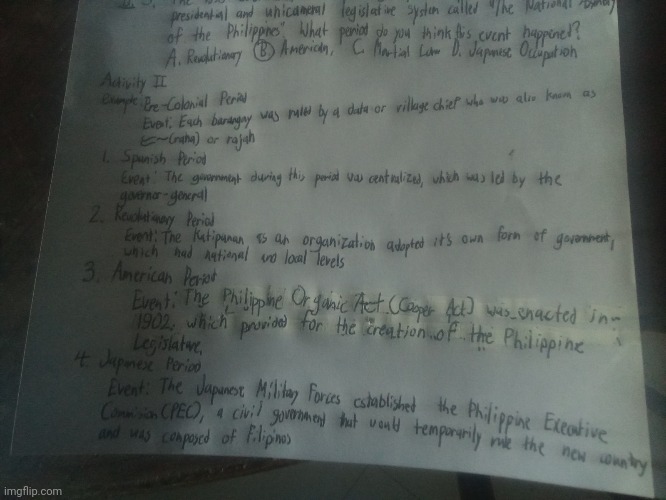 presidential and unicameral legislative system called "The National
of the Philippines" What period do you think this event happened?
A. Revolutionary B American, C. Martial Law D. Japanese Occupation
Activity II
Example: Pre-Colonial Period
Event: Each barangay was ruled by a datu or village chief who was also known as
(raha) or rajah
1. Spanish Period
Event: The government during this period was centralized, which was led by the
governor-general
2. Revolutionary Period
Event: The Katipunan is an organization adopted it's own form of government,
which had national and local levels
3. American Period
Event: The Philippine Organic Act (Cooper Act) was enacted in
1902, which provided for the creation of the Philippine
Legislative,
4. Japanese Period
Event: The Japanese Military Forces established the Philippine Executive
Commision (PEC), a civil government that would temporarily rule the new country
and was composed of Filipinos
imgflip.com